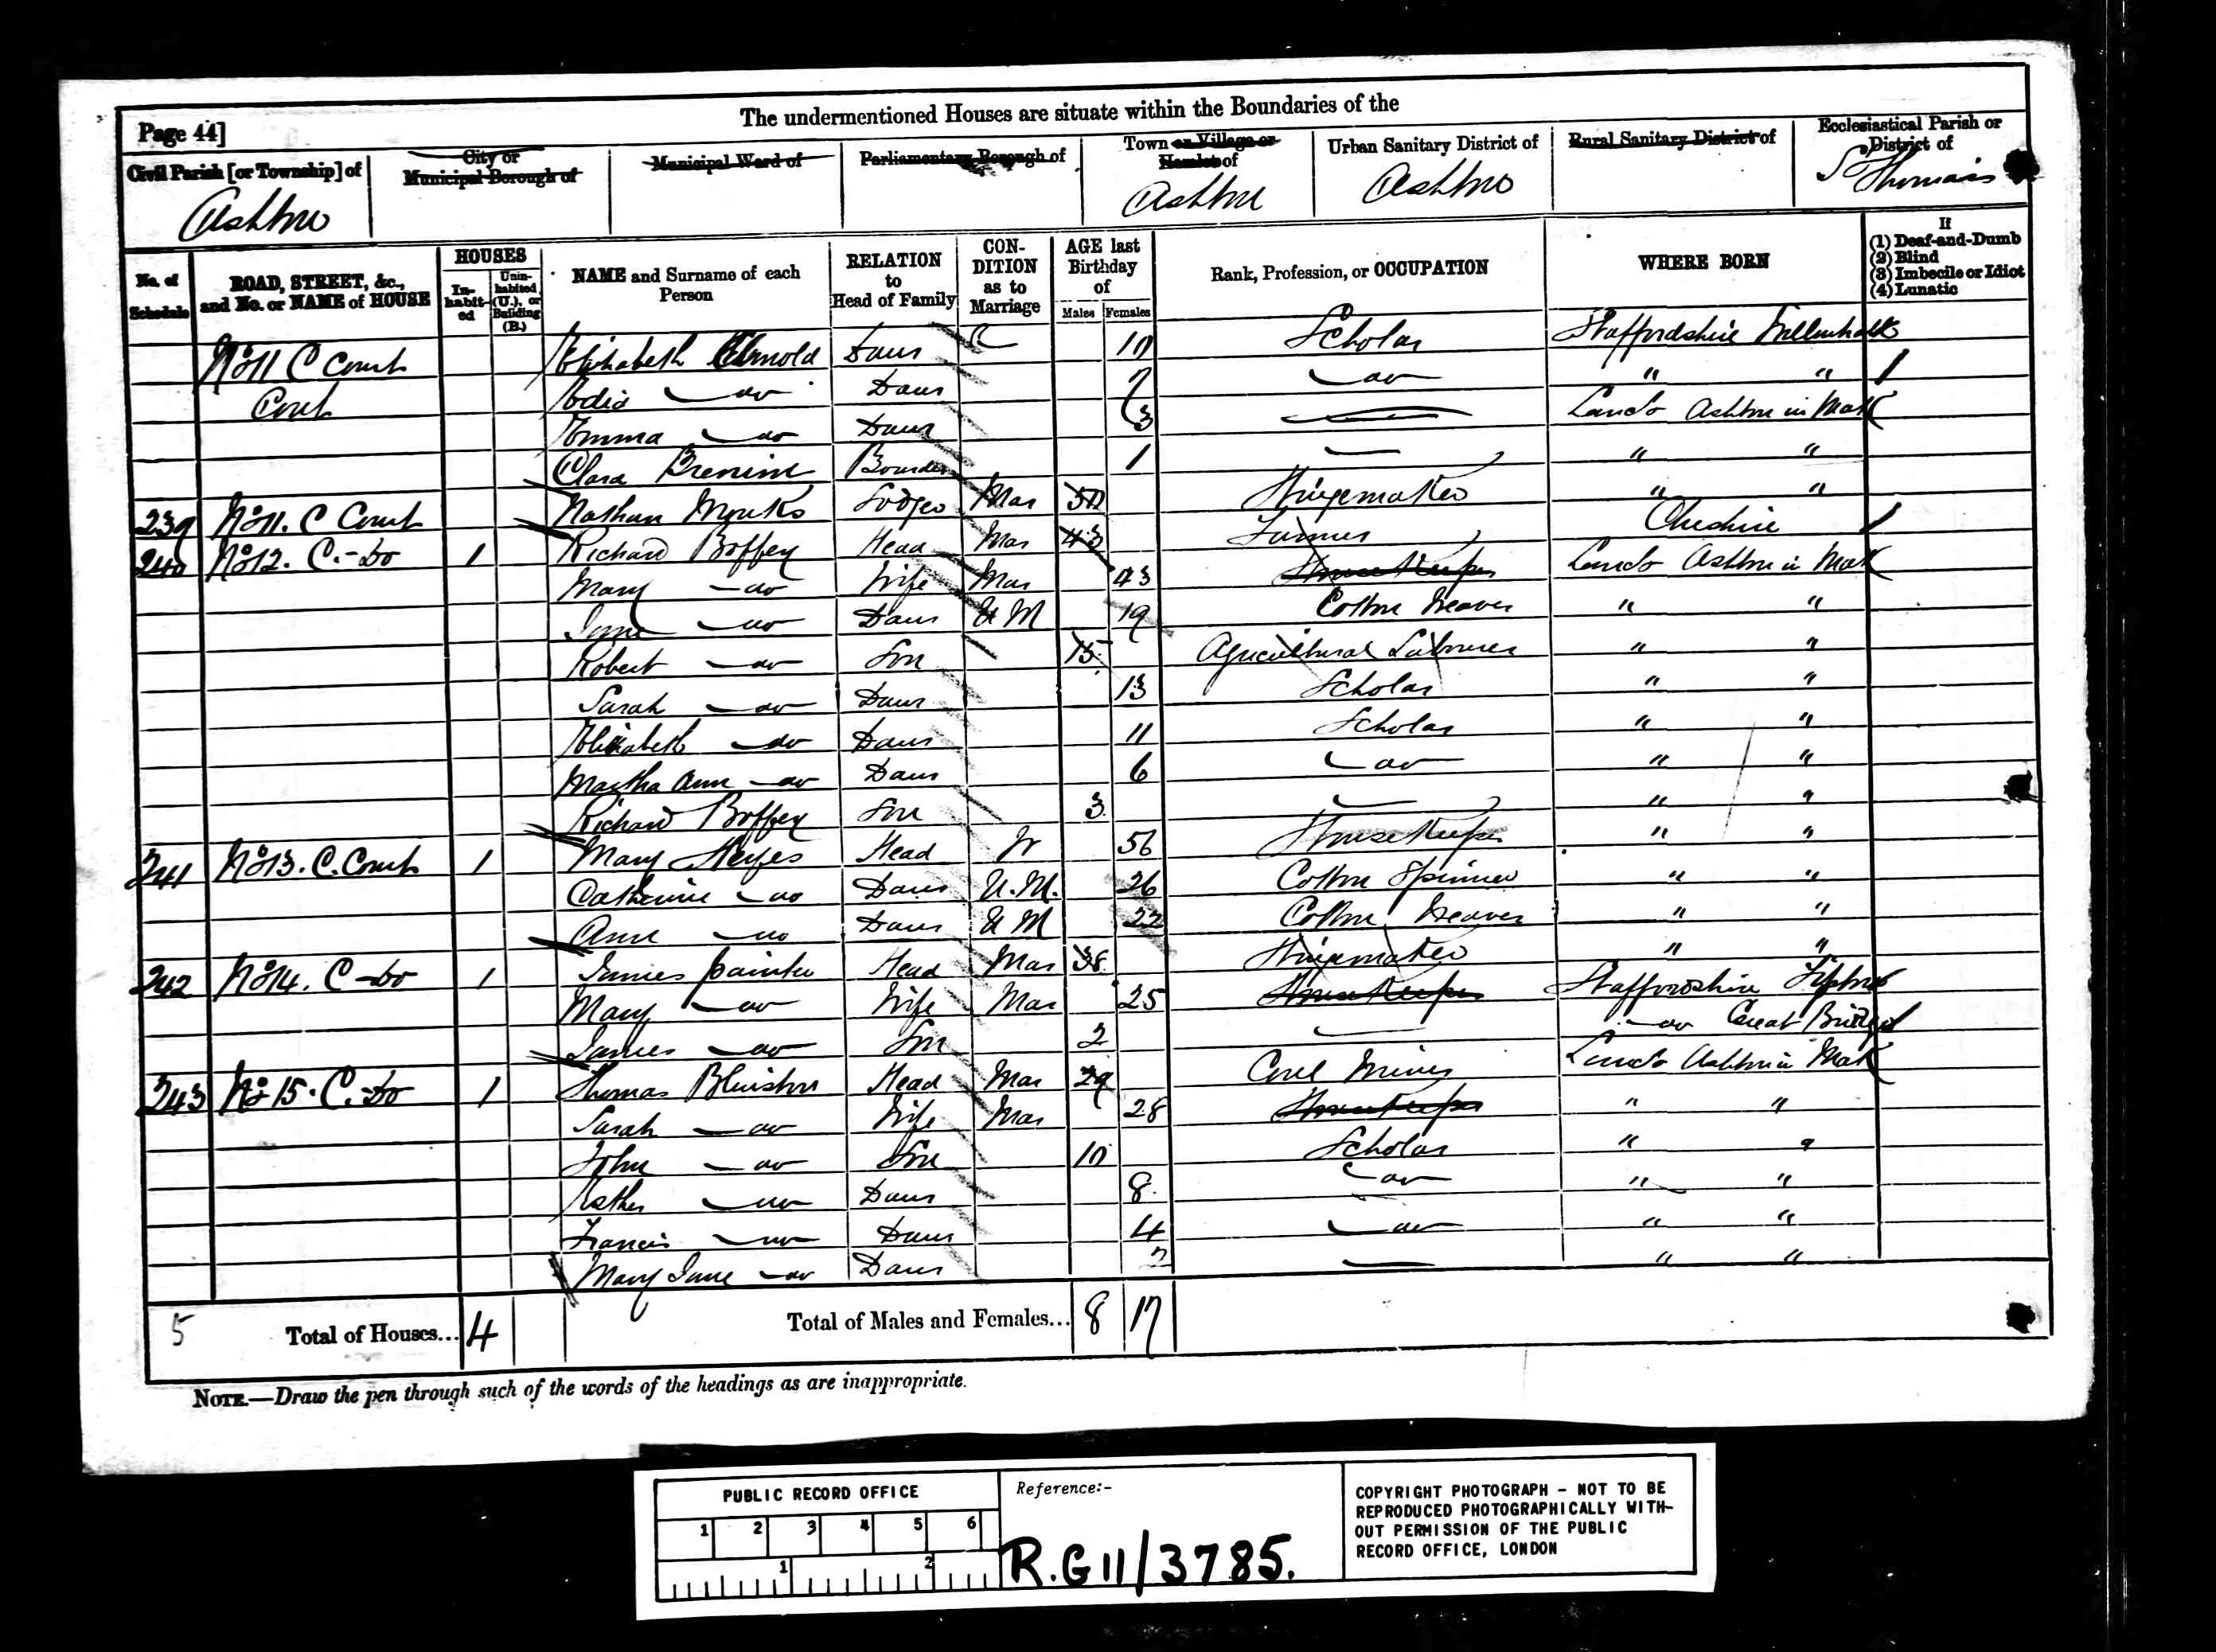 The undermentioned Houses are situate within the Boundaries of the
Page 44]
Civil Parish [or Township] of
City or Municipal Borough of
Municipal Ward of
Parliamentary Borough of
Town or Village or Hamlet of
Urban Sanitary District of
Rural Sanitary District of
Ecclesiastical Parish or District of
Ashton
Ashton
Ashton
St Thomas's
No. of Schedule
ROAD, STREET, &c., and No. or NAME of HOUSE
HOUSES
In-habit-ed
Unin-habited (U.), or Building (B.)
NAME and Surname of each Person
RELATION to Head of Family
CON-DITION as to Marriage
AGE last Birthday of
Males
Females
Rank, Profession, or OCCUPATION
WHERE BORN
If
(1) Deaf-and-Dumb
(2) Blind
(3) Imbecile or Idiot
(4) Lunatic
No 11 C Court Elizabeth Daur 10 Scholar Staffordshire Willenhall
Cont do Daur 7 do " "
Emma do Daur 3 Lancs Ashton in Mak
Clara Boarder 1 " "
239 No 11. C Court Nathan Monks Lodger Mar 50 Hingemaker " "
240 No 12. C. Do 1 Richard Boffey Head Mar 43 Farmer Cheshire
Mary do Wife Mar 43 Housekeeper Lancs Ashton in Mak
Jane do Daur U M 19 Cotton Weaver " "
Robert do Son 15 Agricultural Labourer " "
Sarah do Daur 13 Scholar " "
Elizabeth do Daur 11 Scholar " "
Martha Ann do Daur 6 do " "
Richard Boffey Son 3 " "
241 No 13. C. Court 1 Mary Heyes Head W 56 Housekeeper " "
Catherine do Daur U. M. 26 Cotton Spinner " "
Ann do Daur U M 22 Cotton Weaver " "
242 No 14. C Do 1 James Painter Head Mar 38 Hingemaker " "
Mary do Wife Mar 25 Housekeeper Staffordshire Tipton
James do Son 2 do Great Bridge
243 No 15. C. Do 1 Thomas Head Mar 29 Coal Miner Lancs Ashton in Mak
Sarah do Wife Mar 28 Housekeeper " "
John do Son 10 Scholar " "
Esther do Daur 8 do " "
Francis do Daur 4 do " "
Mary Jane do Daur 2 " "
5 Total of Houses... 4 Total of Males and Females... 8 17
NOTE.—Draw the pen through such of the words of the headings as are inappropriate.
PUBLIC RECORD OFFICE
1 2 3 4 5 6
1 2
Reference:-
R.G 11/3785.
COPYRIGHT PHOTOGRAPH – NOT TO BE
REPRODUCED PHOTOGRAPHICALLY WITH-
OUT PERMISSION OF THE PUBLIC
RECORD OFFICE, LONDON